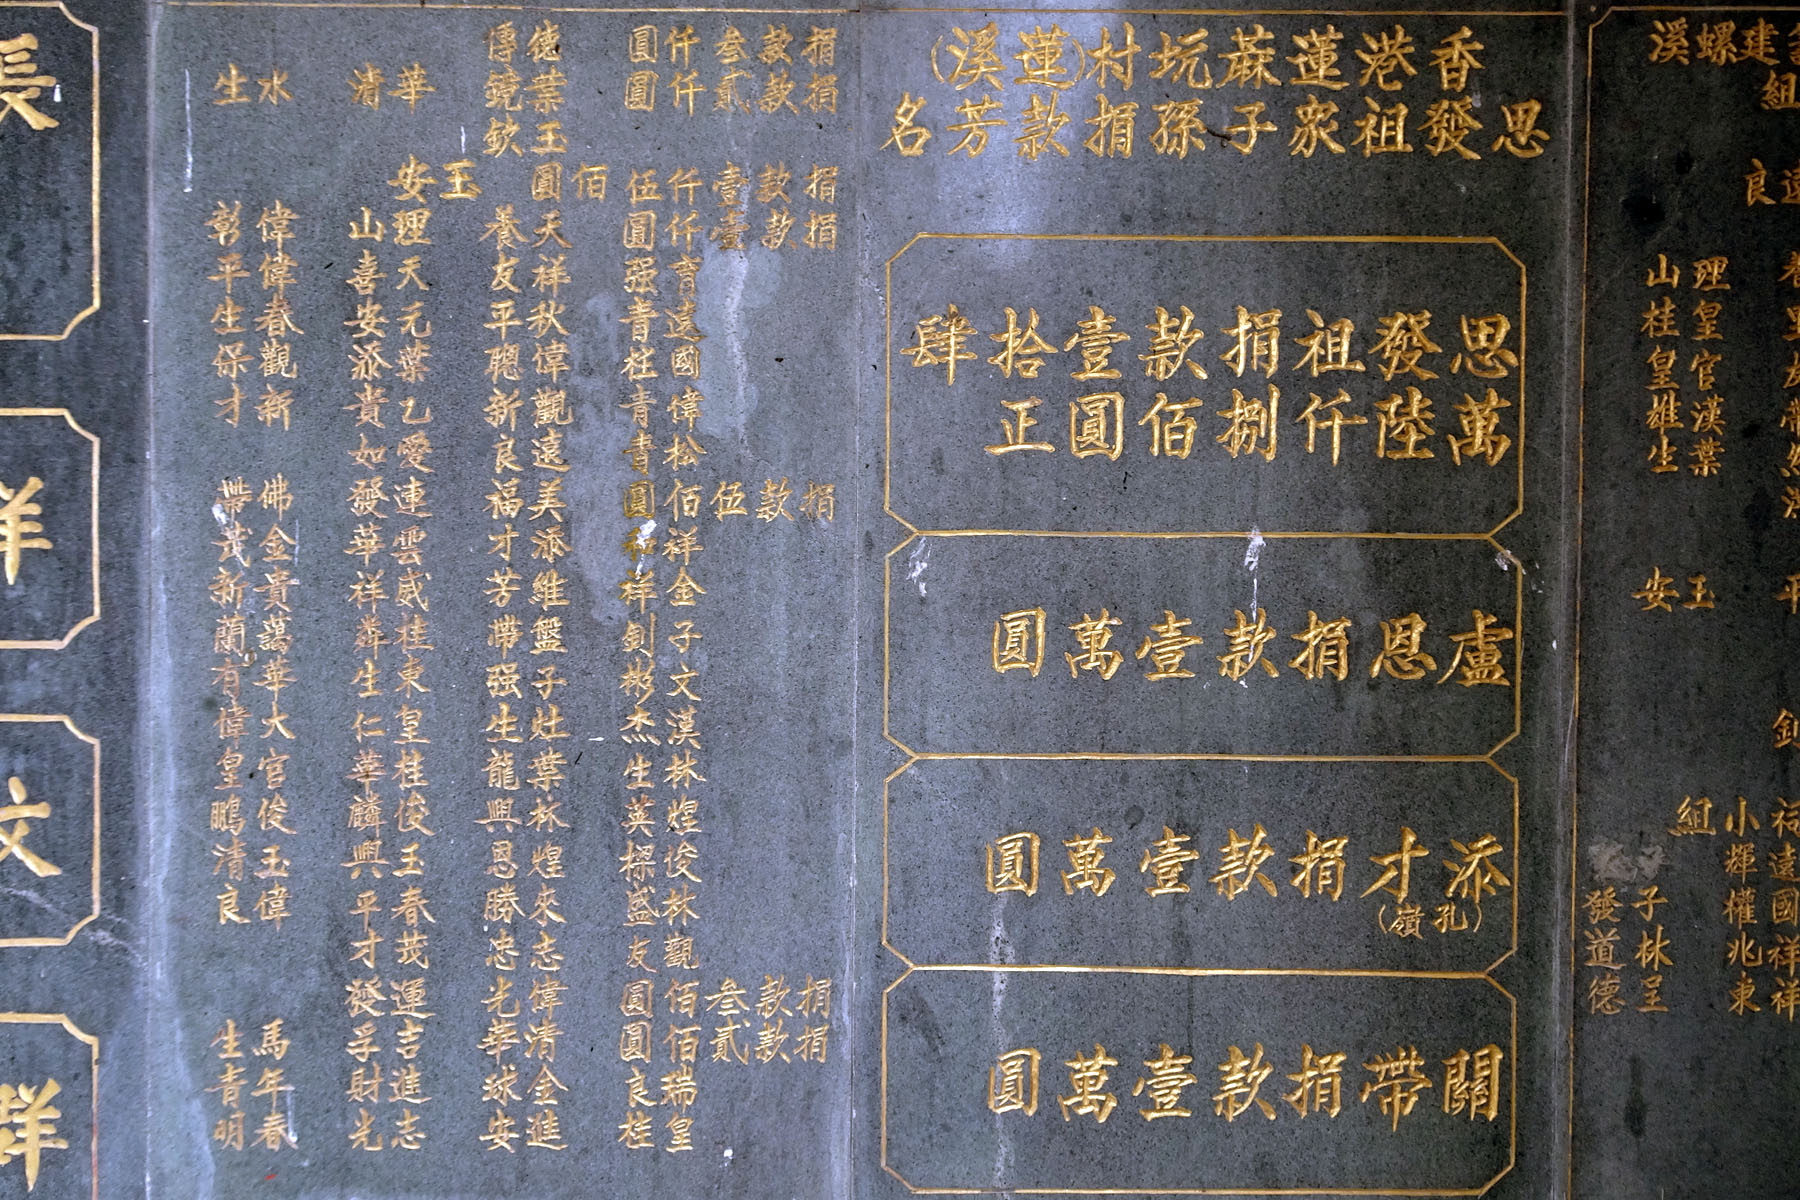 香港蓮蔴坑村(蓮溪)
思發祖眾子孫捐款芳名
思發祖捐款壹拾肆
萬陸仟捌佰圓正
盧恩捐款壹萬圓
添才捐款壹萬圓
(孔嶺)
關帶捐款壹萬圓
捐款叁仟圓 德傳
捐款貳仟圓 葉鏡 華清 水生
玉欽
捐款壹仟伍佰圓 玉安
捐款壹仟圓 天養 理山 偉彰
育强 祥友 天喜 偉平
遠青 秋平 元安 春生
國柱 偉聰 葉添 觀保
偉青 觀新 乙貴 新才
松青 遠良 愛如
捐款伍佰圓 美福 連發 佛帶
祥和 添才 雲華 金茂
金祥 維芳 威祥 貴新
子劍 盤帶 桂燊 藹蘭
文彬 子强 東生 華有
漢杰 灶生 皇仁 大偉
林生 葉龍 桂華 官皇
煌英 林興 俊麟 俊鵬
俊樑 煌恩 玉興 玉清
林盛 來勝 春平 偉良
觀友 志忠 茂才
捐款叁佰圓 偉光 運發
捐款貳佰圓 清華 吉孚 馬生
瑞良 金球 進財 年青
皇柱 進安 志光 春明
建螺溪
組
遠良
理山
皇桂
官皇
漢雄
葉生
玉安
裕小組
遠輝
國權 子發
祥兆 林道
祥東 呈德
長
文